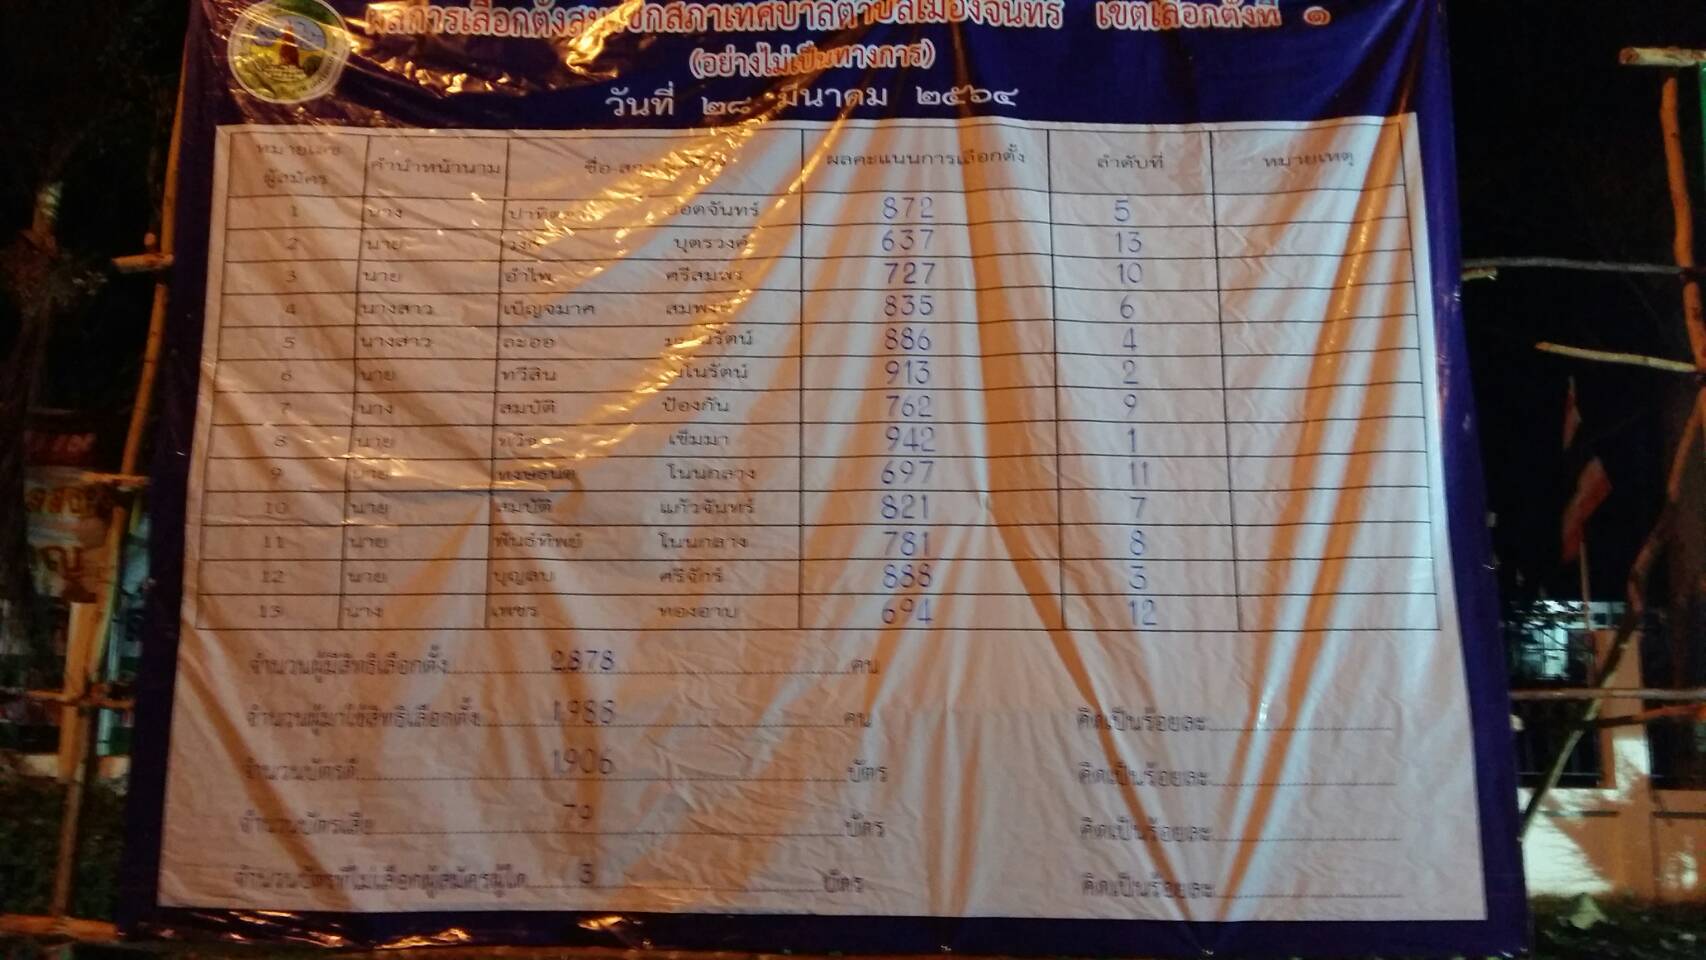 ผลการเลือกตั้งสมาชิกสภาเทศบาลตำบลเมืองจันทร์ เขตเลือกตั้งที่ ๑
(อย่างไม่เป็นทางการ)
วันที่ ๒๘ มีนาคม ๒๕๖๔
หมายเลขผู้สมัคร คำนำหน้านาม ชื่อ-สกุล ผลคะแนนการเลือกตั้ง ลำดับที่ หมายเหตุ
1 นาง 872 5
2 นาย บุตรวงค์ 637 13
3 นาย อำไพ ศรีสมพร 727 10
4 นางสาว เบ็ญจมาศ 835 6
5 นางสาว ละออ มโนรัตน์ 886 4
6 นาย ทวีสิน มโนรัตน์ 913 2
7 นาง สมบัติ ป้องกัน 762 9
8 นาย เข็มมา 942 1
9 นาย โนนกลาง 697 11
10 นาย สมบัติ แก้วจันทร์ 821 7
11 นาย พันธ์ทิพย์ โนนกลาง 781 8
12 นาย บุญลบ ศรีจักร์ 888 3
13 นาง เพชร ทองอาบ 694 12
จำนวนผู้มีสิทธิเลือกตั้ง 2,878 คน
จำนวนผู้มาใช้สิทธิเลือกตั้ง 1,988 คน คิดเป็นร้อยละ
จำนวนบัตรดี 1,906 บัตร คิดเป็นร้อยละ
จำนวนบัตรเสีย 79 บัตร คิดเป็นร้อยละ
จำนวนบัตรที่ไม่เลือกผู้สมัครผู้ใด 3 บัตร คิดเป็นร้อยละ